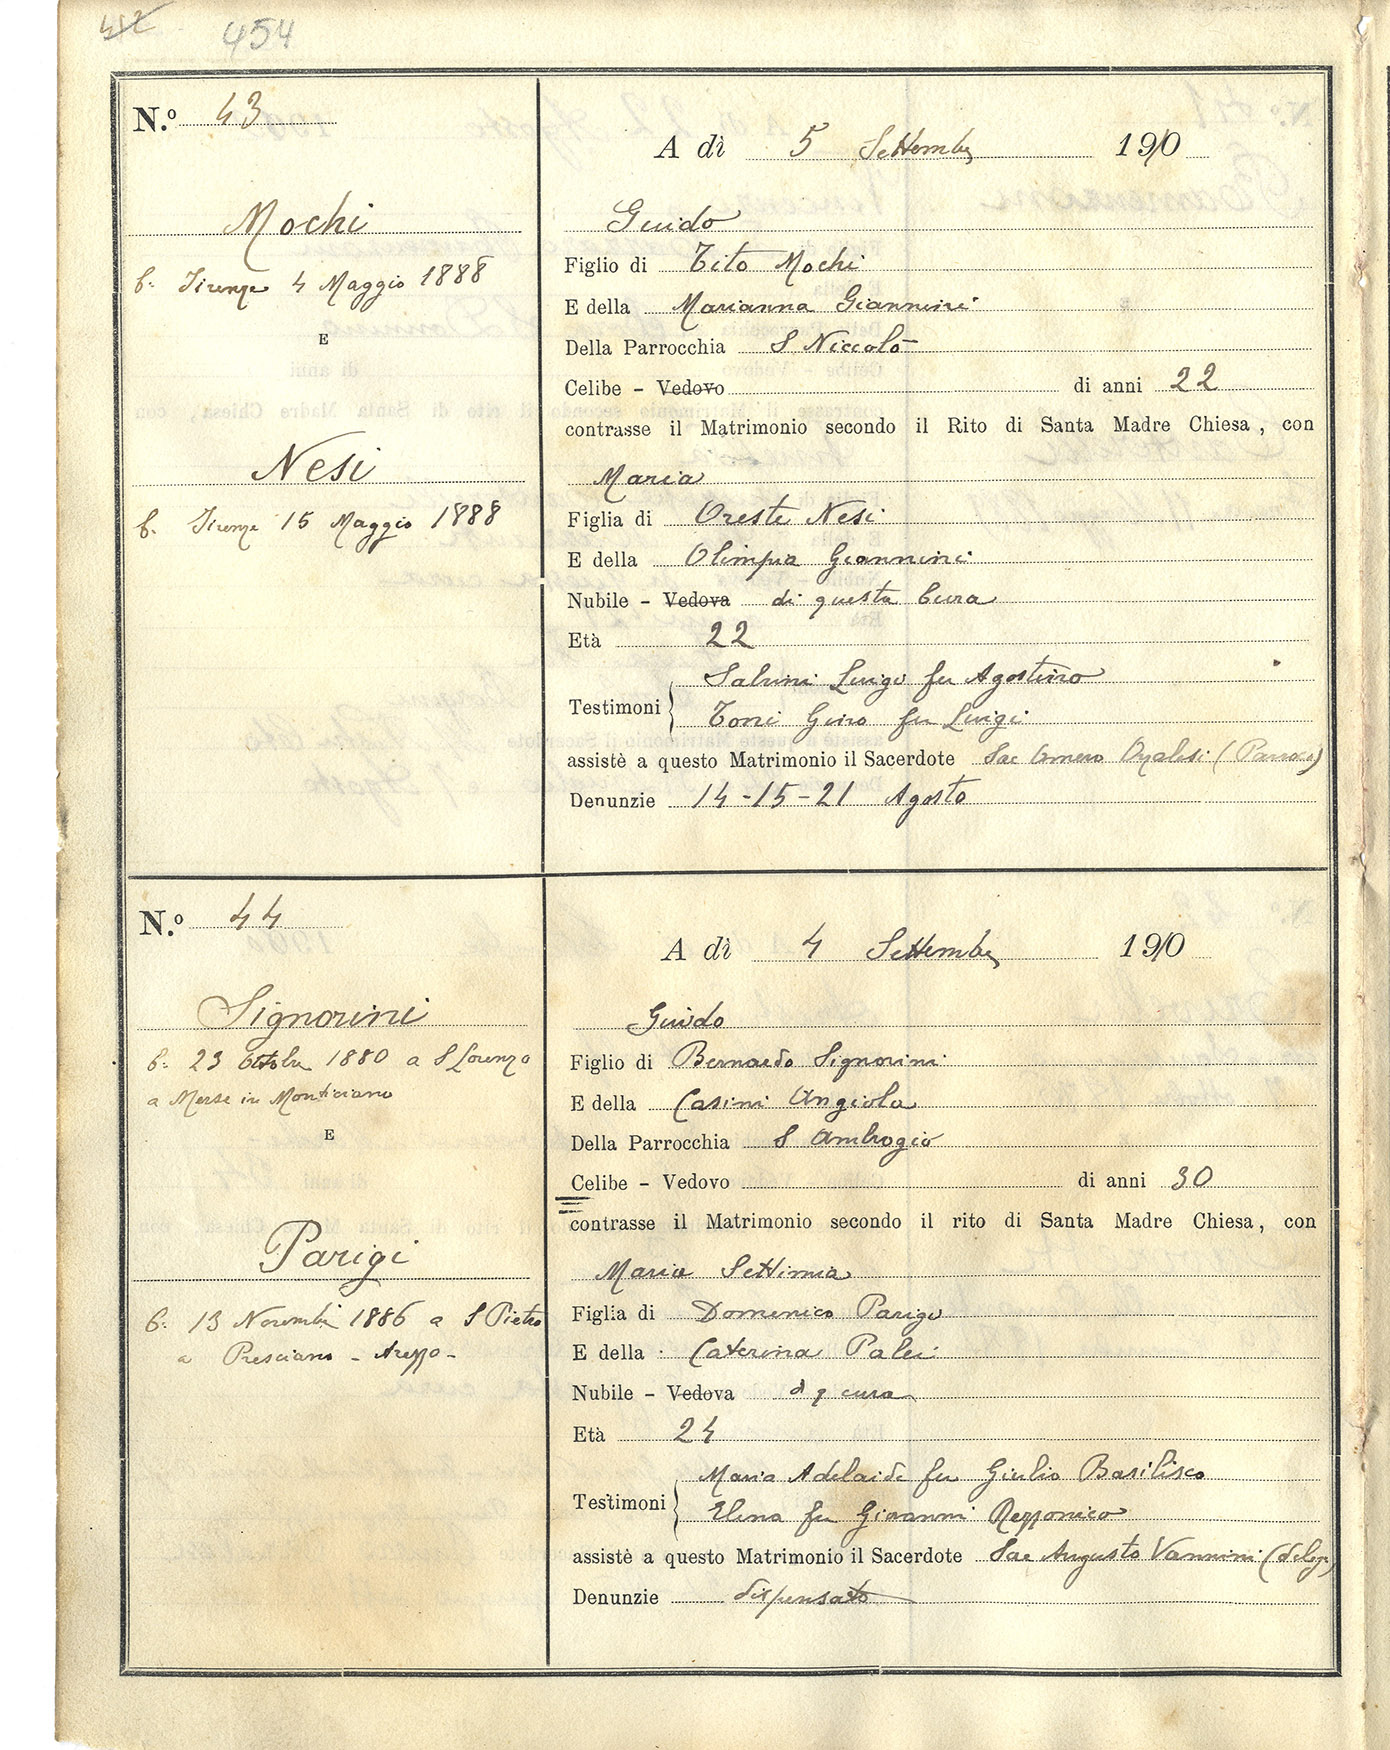 454
N.º 43
A dì 5 Settembre 1910
Mochi
b. Firenze 4 Maggio 1888
E
Nesi
b. Firenze 15 Maggio 1888
Guido
Figlio di Tito Mochi
E della Marianna Giannini
Della Parrocchia S Niccolò
Celibe - Vedovo di anni 22
contrasse il Matrimonio secondo il Rito di Santa Madre Chiesa, con
Maria
Figlia di Oreste Nesi
E della Olimpia Giannini
Nubile - Vedova di questa Cura
Età 22
Testimoni Salvini Luigi fu Agostino
Torri Gino fu Luigi
assistè a questo Matrimonio il Sacerdote Sac (Parroco)
Denunzie 14-15-21 Agosto
N.º 44
A dì 4 Settembre 1910
Signorini
b. 23 Ottobre 1880 a S Lorenzo
a Merse in Monticiano
E
Parigi
b. 13 Novembre 1886 a S Pietro
a Presciano - Arezzo -
Guido
Figlio di Bernardo Signorini
E della Casini Angiola
Della Parrocchia S Ambrogio
Celibe - Vedovo di anni 30
contrasse il Matrimonio secondo il rito di Santa Madre Chiesa, con
Maria Settimia
Figlia di Domenico Parigi
E della Caterina Palei
Nubile - Vedova d q cura
Età 24
Testimoni Maria Adelaide fu Giulio Basilisco
Elena fu Giovanni Rezzonico
assistè a questo Matrimonio il Sacerdote Sac Augusto Vannini (deleg.)
Denunzie dispensato